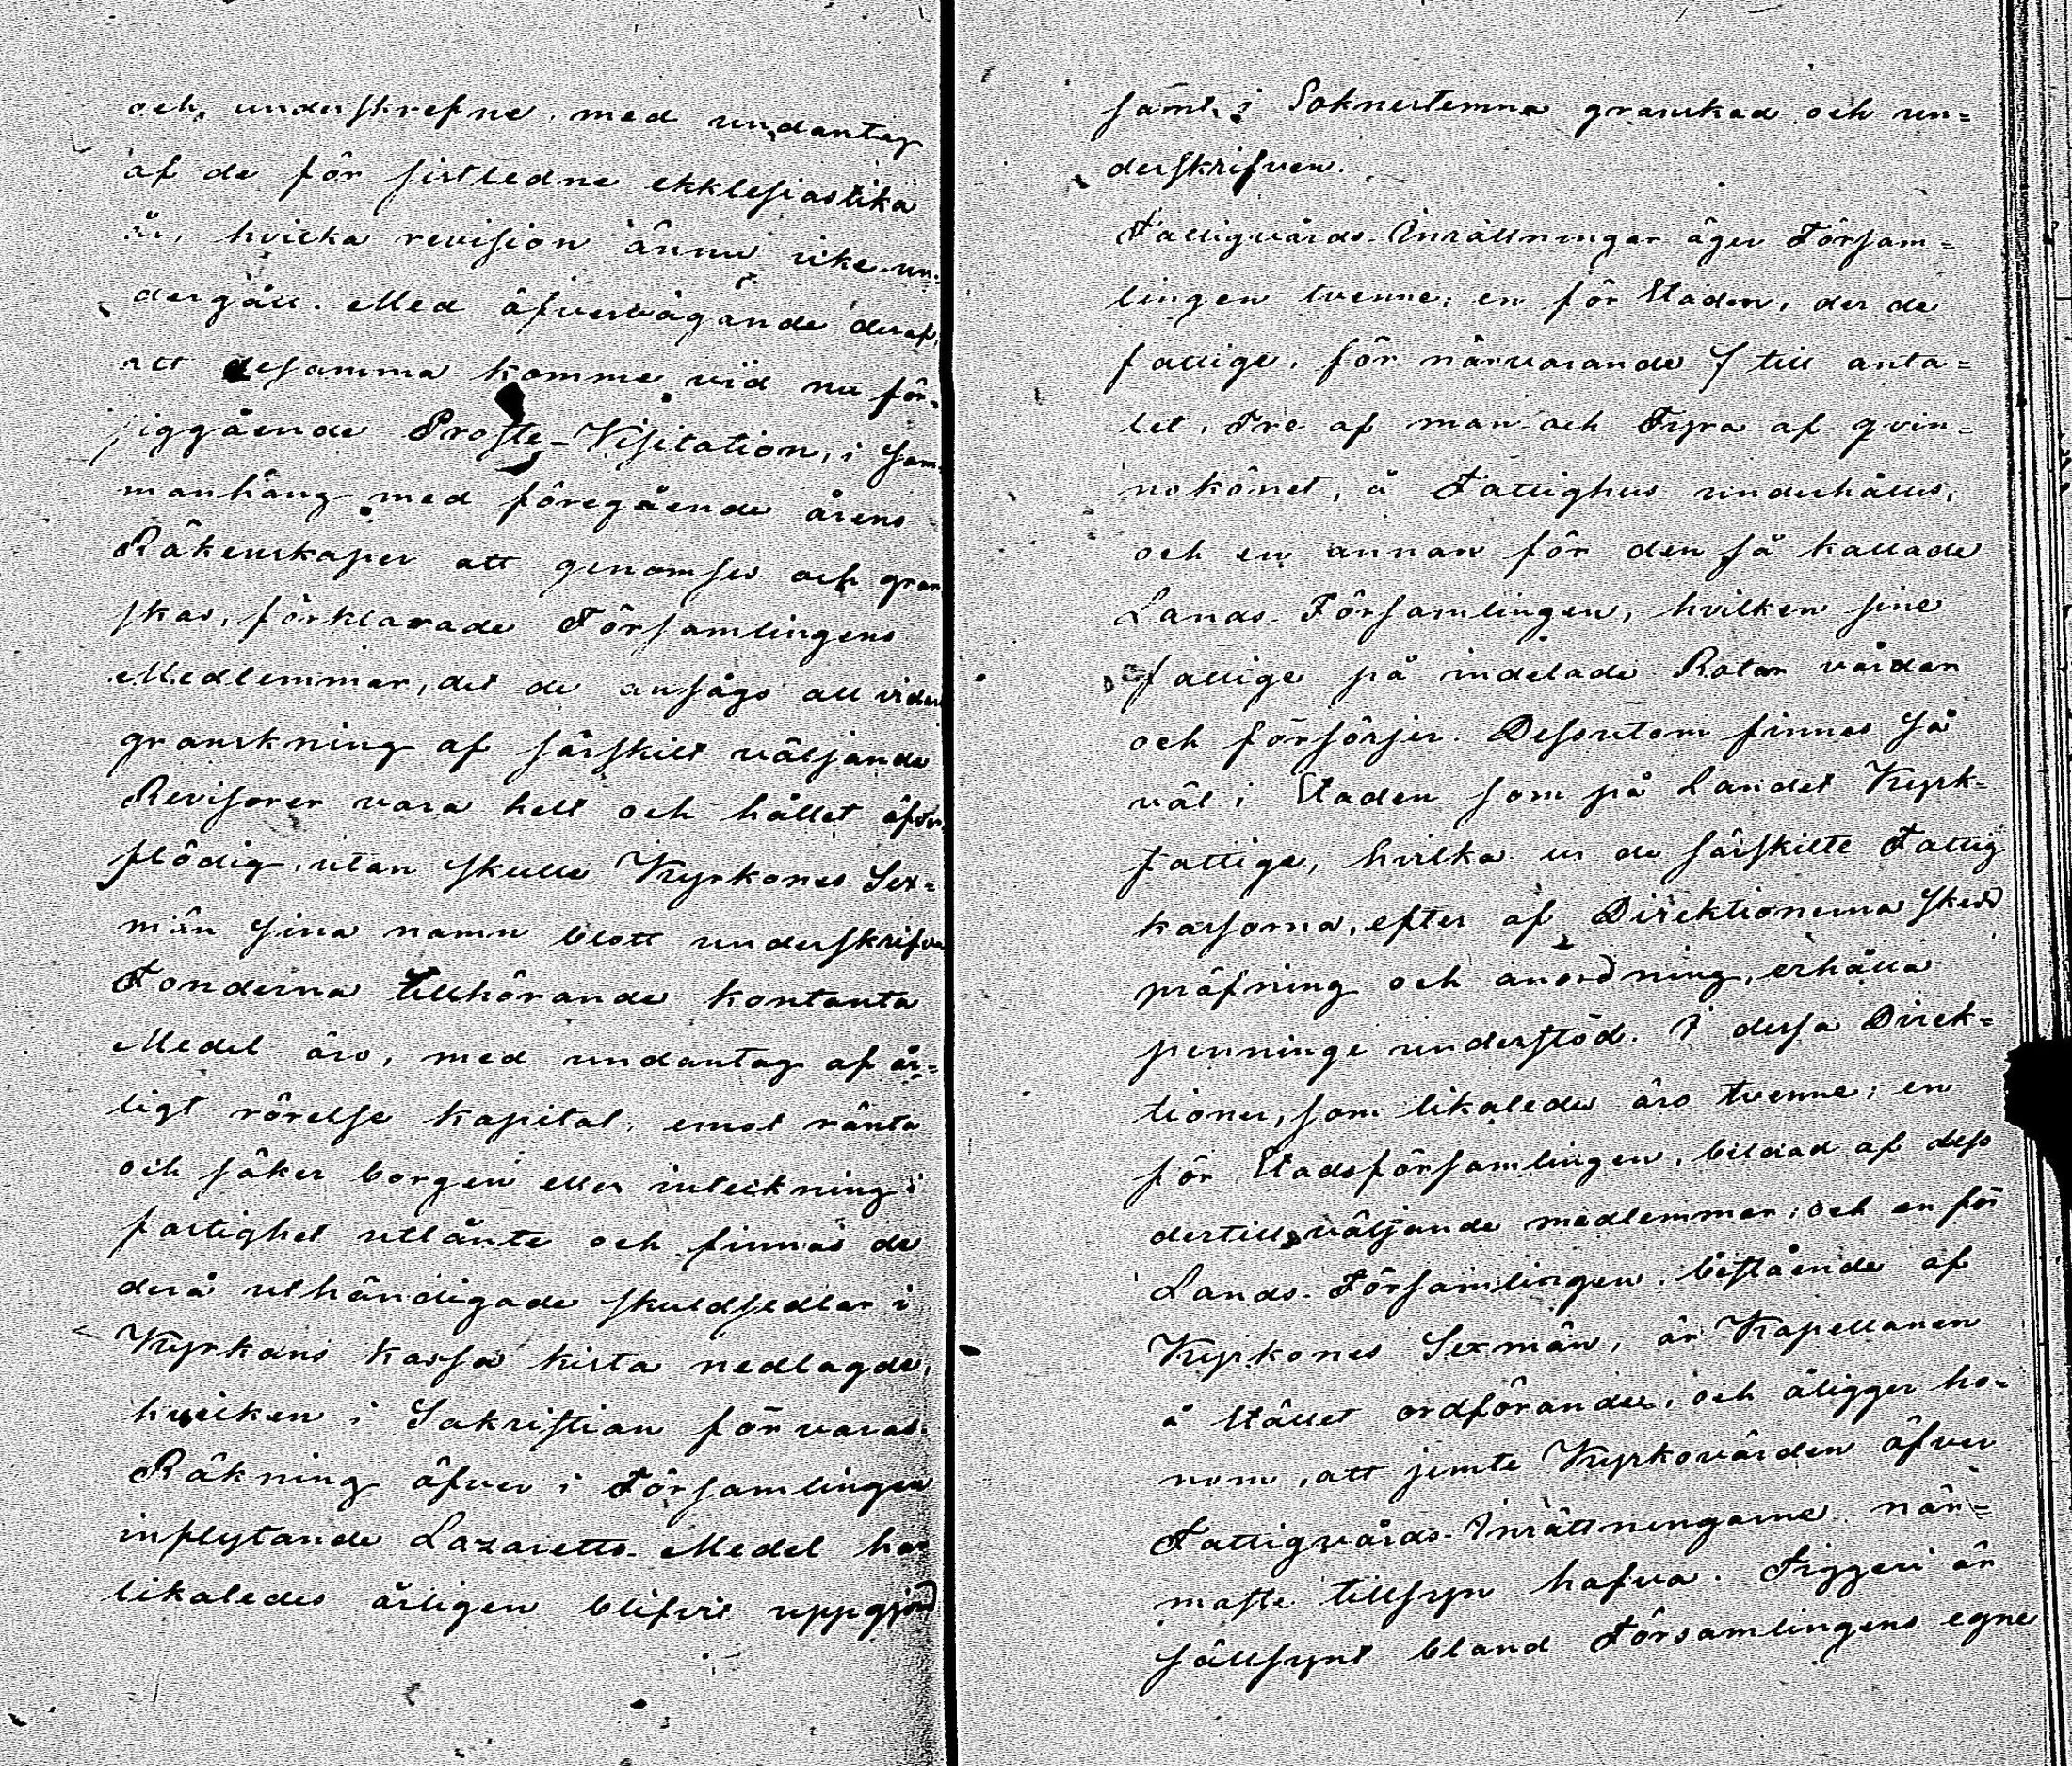 och underskrefne, med undantag
af de för sistledne ekklesiastika
år, hvilka revision ännu icke un-
dergått. Med öfvervägande deraf,
att desamma komme vid nu för-
siggående Proste-Visitation, i sam-
manhang med föregående årens
Räkenskaper att genomses och gran
skas, förklarade Församlingens
Medlemmar, det de ansågo all vidare
granskning af särskilt väljande
Revisorer vara helt och hållet öfver
flödig, utan skulle Kyrkones Sex=
män sina namn blott underskrifva
Fonderna tillhörande kontanta
Medel äro, med undantag af år=
ligt rörelse kapital, emot ränta
och säker borgen eller inteckning i
fastighet utlånte och finnas de
derå uthändigade skuldsedlar i
Kyrkans kassa kista nedlagde,
hvilken i Sakristian förvaras.
Räkning öfver i Församlingen
inflytande Lazaretts-Medel har
likaledes årligen blifvit uppgjord
samt i Soknestemna granskad och un=
derskrifven.
Fattigvårds-Inrättningar äger Försam=
lingen tvenne; en för Staden, der de
fattige, för närvarande 7 till anta=
let, Tre af man och Fyra af qvin=
nokönet, å Fattighus underhålles,
och en annan för den så kallade
Lands-Församlingen, hvilken sine
fattige på indelade Rotar vårdar
och försörjer. Dessutom finnas så
väl i Staden som på Landet Kyrk=
fattige, hvilka ur de särskilte Fattig
kassorna, efter af Direktionerna skedd
pröfning och anordning, erhålla
penninge understöd. I dessa Direk=
tioner, som likaledes äro tvenne; en
för Stadsförsamlingen, bildad af dess
dertill väljande medlemmar; och en för
Lands-Församlingen, bestående af
Kyrkones Sexmän, är Kapellanen
å stället ordförande, och åligger ho=
nom, att jemte Kyrkovärden öfver
Fattigvårds-Inrättningarne när=
maste tillsyn hafva. Tiggeri är
sällsynt bland Församlingens egne